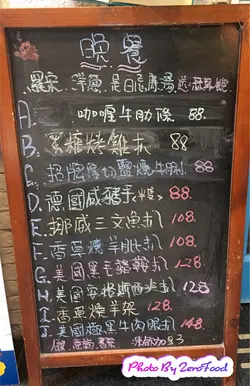 晚餐
羅宋
A. 咖喱牛肋條 88.
B. 黑椒烤雞扒 88
C. 招牌厚切鹽燒牛脷 88
D. 德國咸豬手 88.
E. 挪威三文魚扒 108.
F. 香草燒羊肚扒 108.
G. 美國黑毛豬鞍扒 128.
H. 美國安格斯西冷扒 128
I. 香草燒羊架 128.
J. 美國極黑牛肉眼扒 148.
Photo By ZeroFood